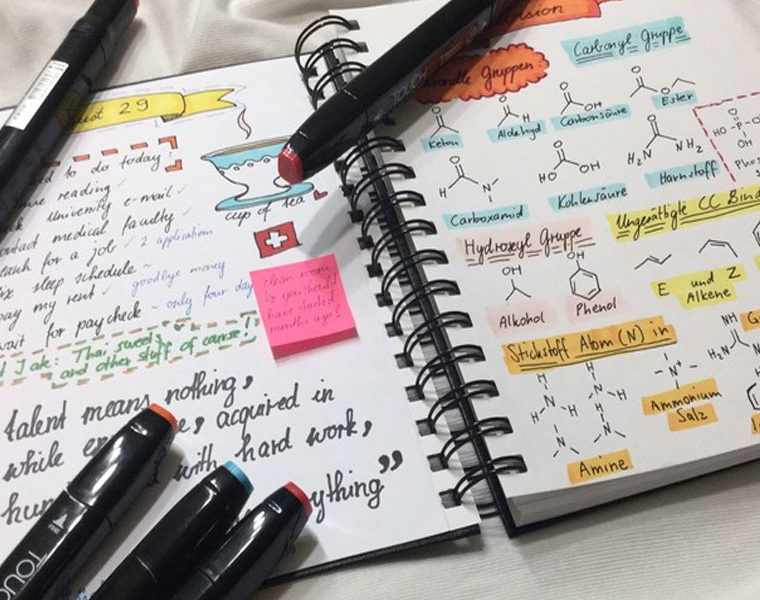 ust 29
d to do today:
me reading ✓
k University e-mail ✓
ontact medical faculty ✓
each for a job ✓ 2 applications
ix sleep schedule ~
pay my rent ✓ goodbye money
wait for paycheck ~ only four day
cup of tea
clean room
:) you should
have started
months ago!
Jake: Thai, sweets
and other stuff of course!
talent means nothing,
while e , acquired in
hu with hard work,
ything”
TOUC
ersion
onelle Gruppen
Carbonyl Gruppe
Keton
Aldehyd
H
Carbonsäure
OH
Ester
O
Carboxamid
H
N
Kohlensäure
HO OH
Harnstoff
H₂N NH₂
HO-P-O
OH
Phos
Hydroxyl Gruppe
OH
Alkohol
OH
Phenol
Ungesättigte CC Bind
E und Z
Alkene
Stickstoff Atom (N) in
Amine
Ammonium
Salz
N⁺
NH
H₂N
G